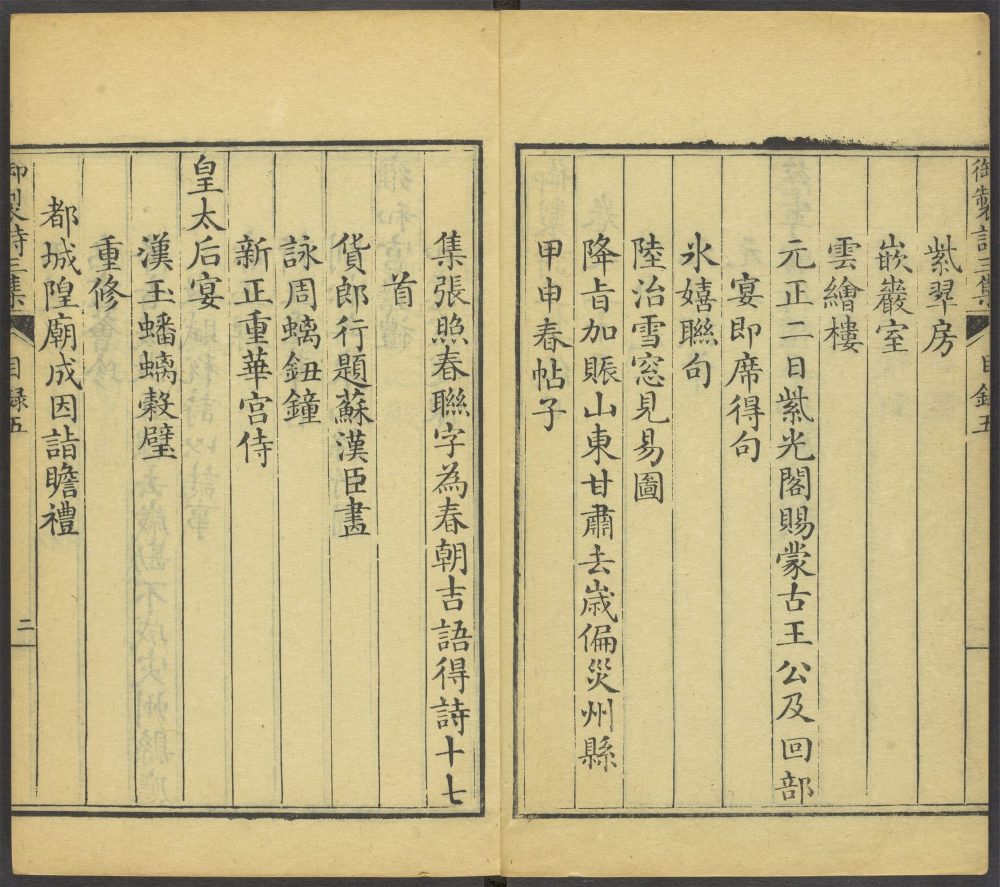 御製詩三集 目錄五
紫翠房
嵌巖室
雲繪樓
元正二日紫光閣賜蒙古王公及回部
宴即席得句
氷嬉聯句
陸治雪窓見易圖
降旨加賑山東甘肅去歲偏災州縣
甲申春帖子
集張照春聯字為春朝吉語得詩十七
首
貨郎行題蘇漢臣畫
詠周蟠鈕鐘
新正重華宮侍
皇太后宴
漢玉蟠螭穀璧
重修
都城隍廟成因詣瞻禮
御製詩三集 目錄五 二